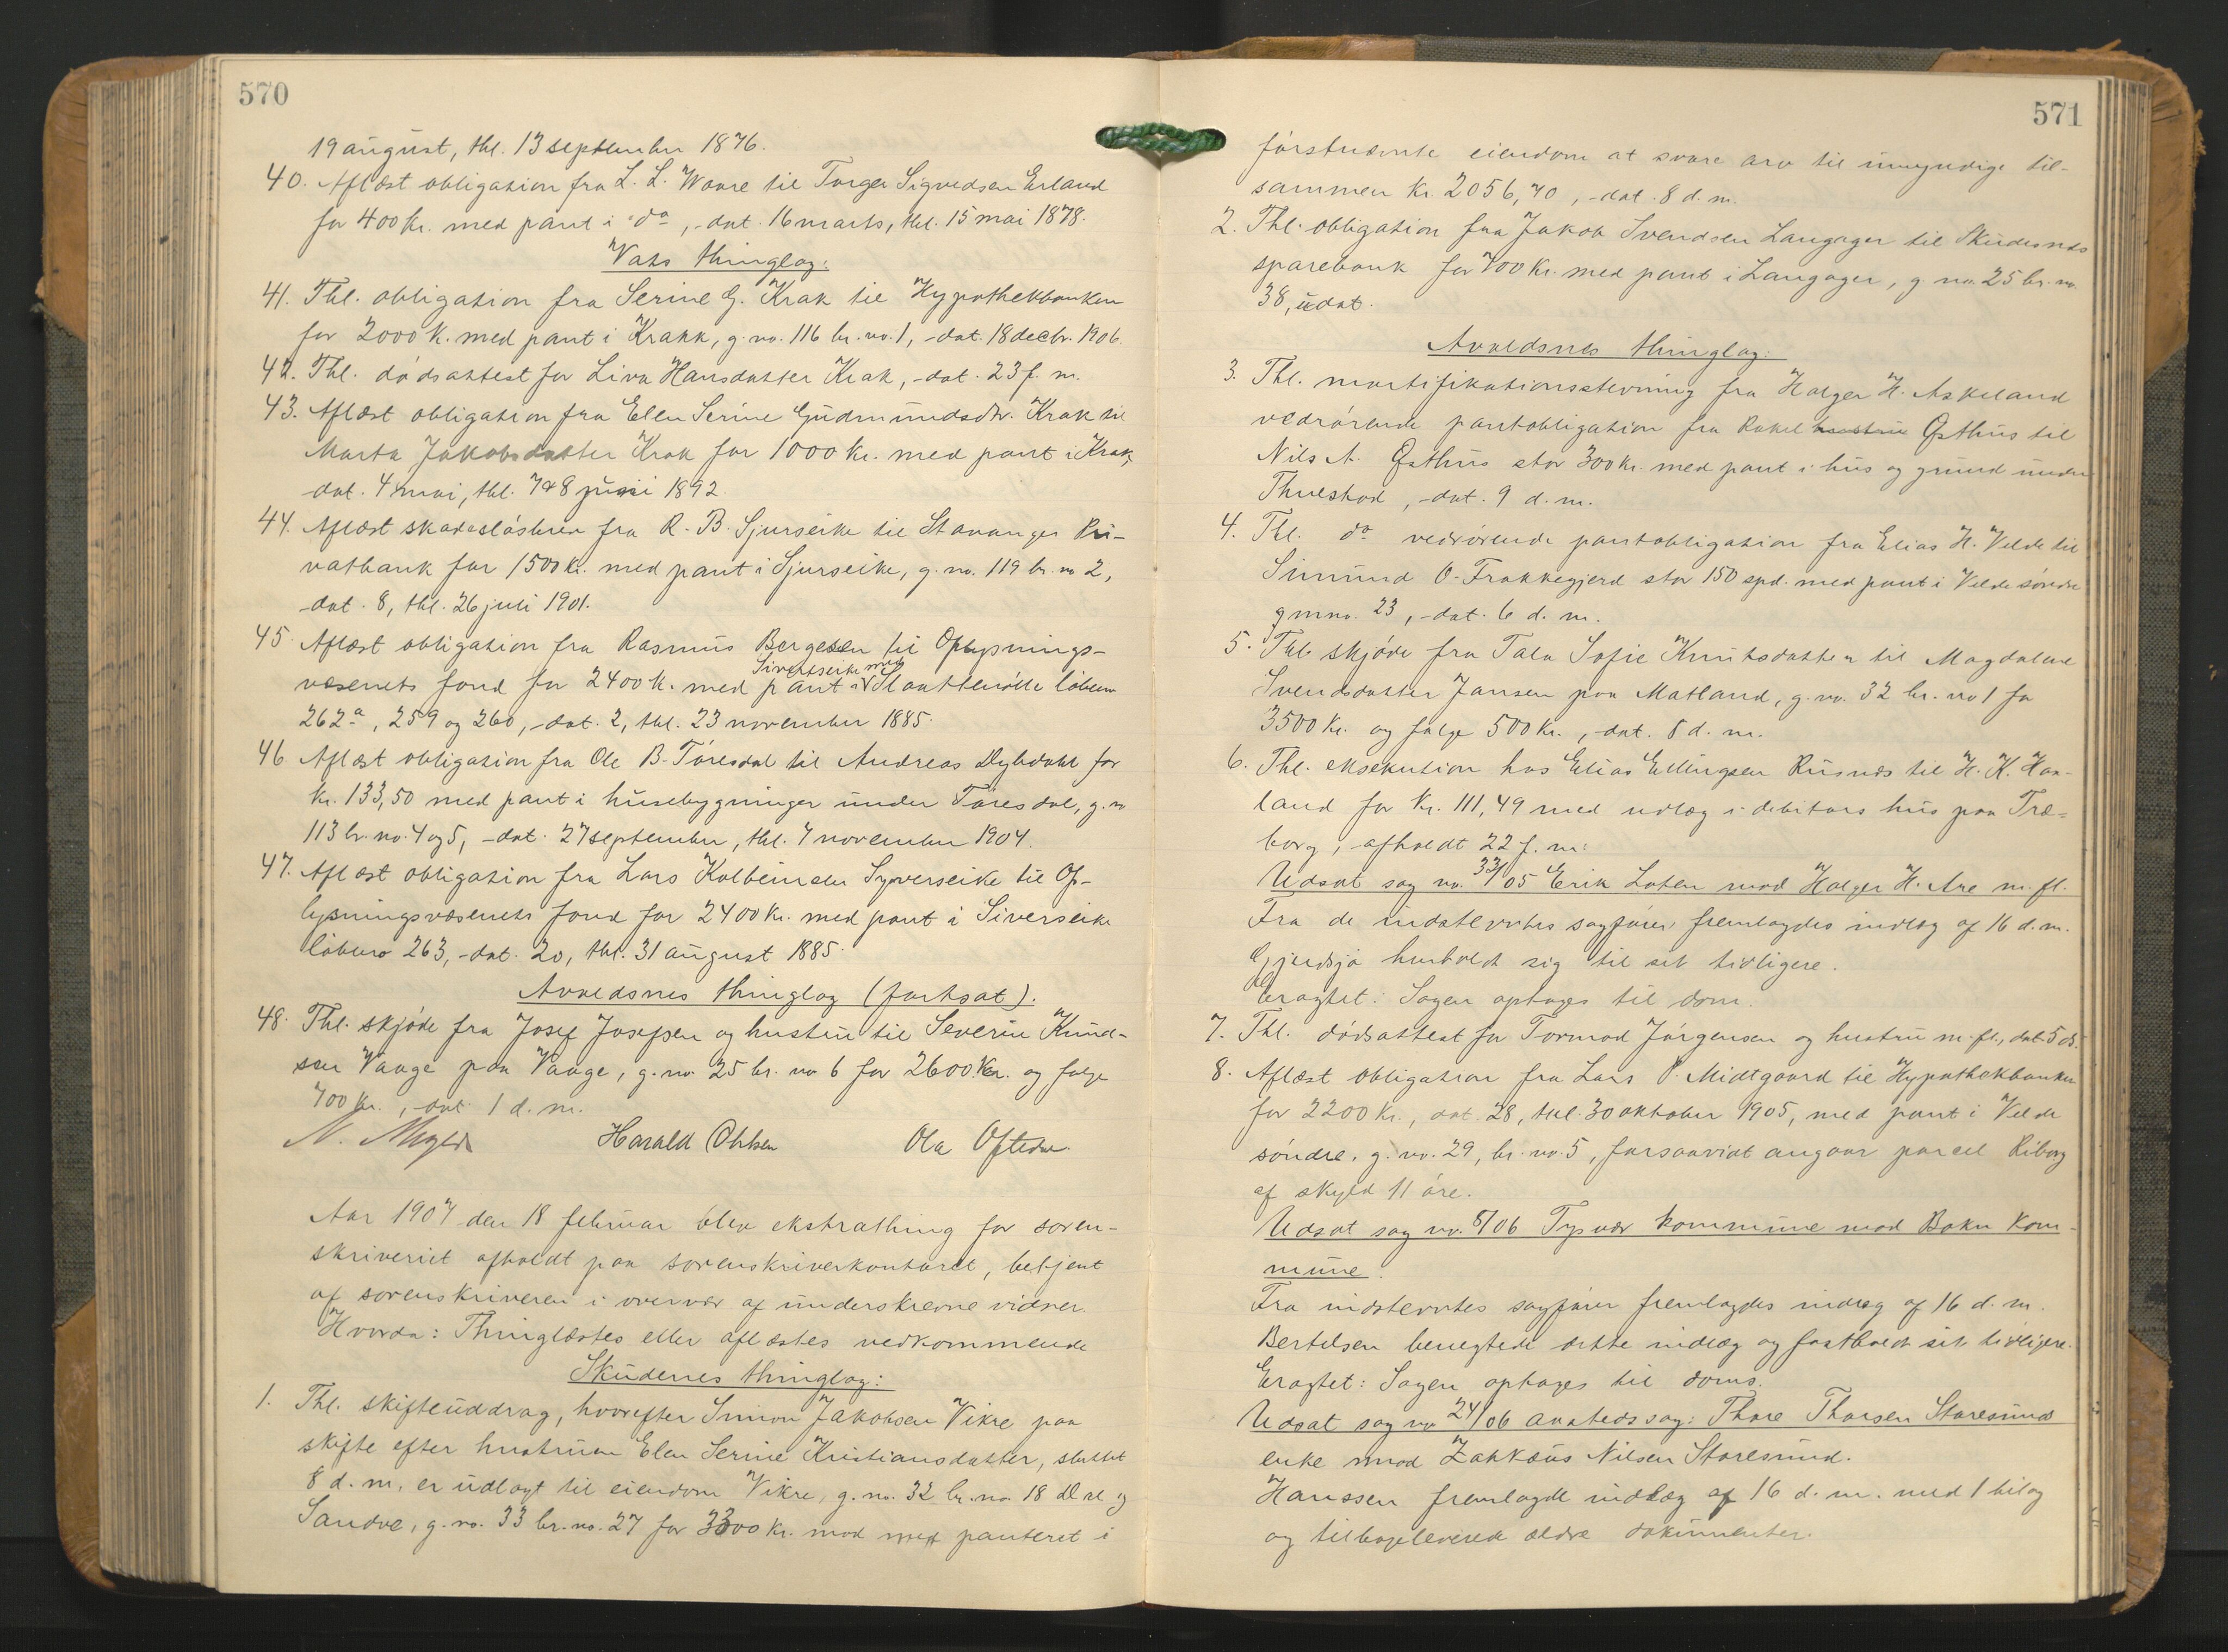 570
19 august, thl. 13 september 1876.
40. Aflæst obligation fra L. L. Waare til Torger Sigvedsen Erland
for 400 kr. med pant i do, -dat. 16 marts, thl. 15 mai 1878.
Vats thinglag:
41. Thl. obligation fra Serine G. Krak til Hypothekbanken
for 2000 k. med pant i Krakk, g. no. 116 br. no. 1, -dat. 18 decbr. 1906.
42. Thl. dødsattest for Liva Hansdatter Krak, -dat. 23 f. m.
43. Aflæst obligation fra Ellen Serine Gudmundsdtr. Krak til
Marta Jakobsdatter Krak for 1000 kr. med pant i Krak,
dat. 4 mai, thl. 7 & 8 juni 1892.
44. Aflæst skadesløsbrev fra R. B. Sjurseike til Stavanger Pri-
vatbank for 1500 kr. med pant i Sjurseike, g. no. 119 br. no 2,
-dat. 8, thl. 26 juli 1901.
45. Aflæst obligation fra Rasmus Bergesen til Oplysnings-
Sivertseike med
væsenets fond for 2400 k. med pant i Slaattenølle løbeno
262a, 259 og 260, -dat. 2, thl. 23 november 1885.
46 Aflæst obligation fra Ole B. Tøresdal til Andreas Dybdahl for
kr. 133,50 med pant i husebygninger under Tøresdal, g. no
113 br. no. 4 og 5, -dat. 27 september, thl. 7 november 1904.
47. Aflæst obligation fra Lars Kolbeinsen Syverseike til Op-
lysningsvæsenets fond for 2400 kr. med pant i Siverseike
løbeno 263, -dat. 20, thl. 31 august 1885.
Avaldsnes thinglag (fortsat).
48. Thl. skjøde fra Josef Josefsen og hustru til Severin Knud-
sen Vaage paa Vaage, g. no. 25 br. no 6 for 2600 kr. og følge
700 kr., -dat 1 d. m.
Harald Ohlsen Ola Oftedal
Aar 1907 den 18 februar blev ekstrathing for soren-
skriveriet afholdt paa sorenskriverkontoret, betjent
af sorenskriveren i overvær af underskrevne vidner.
Hvorda: Thinglæstes eller aflæstes vedkommende
Skudenes thinglag:
1. Thl. skifteuddrag, hvorefter Simon Jakobsen Vikre paa
skifte efter hustruen Elen Serine Kristiansdatter, sluttet
8 d. m. er udlagt til eiendom Vikre, g. no. 32 br. no. 18 Dal og
Sandve, g. no. 33 br. no. 27 for 3300 kr. mod med panteret i
571
førstnævnte eiendom at svare arv til umyndige til-
sammen kr. 2056,70, -dat. 8 d. m.
2. Thl. obligation fra Jakob Svendsen Langager til Skudesnes
sparebank for 700 kr. med pant i Langager, g. no. 25 br. no.
38, udat.
Avaldsnes thinglag:
3. Thl. mortifikationsstevning fra Holger H. Askeland
vedrørende pantobligation fra Rakel hustru Østhus til
Nils A. Østhus stor 300 kr. med pant i hus og grund under
Thuestad, -dat. 9 d. m.
4. Thl. do vedrørende pantobligation fra Elias H. Velde til
Simund O. Frakkegjerd stor 150 spd. med pant i Velde søndre
gmno. 23, -dat. 6 d. m.
5. Thl. skjøde fra Tala Sofie Knutsdatter til Magdalene
Svendsdatter Jansen paa Matland, g. no. 32 br. no 1 for
3500 kr. og følge 500 kr., -dat. 8 d. m.
6. Thl. eksekution hos Elias Ellingsen Risnes til H. K. Haa-
land for kr. 111,49 med udlæg i debitors hus paa Træ-
borg, -afholdt 22 f. m.
Udsat sag no. 33/05 Erik Loten mod Holger H. Are m. fl.
Fra de indstevntes sagfører fremlagdes indlæg af 16 d. m.
Gjerdsjø henholdt sig til sit tidligere.
Eragtet: Sagen optages til dom.
7. Thl. dødsattest for Tormod Jørgensen og hustru m. fl., dat. 5 ds.
8. Aflæst obligation fra Lars P. Midtgaard til Hypothekbanken
for 2200 kr., dat. 28, thl. 30 oktober 1905, med pant i Velde
søndre, g. no. 29, br. no. 5, forsaavidt angaar parcel Riborg
af skyld 11 øre.
Udsat sag no. 8/06 Tysvær kommune mod Bokn kom-
mune.
Fra indstevntes sagfører fremlagdes indlæg af 16 d. m.
Bertelsen benegtede dette indlæg og fastholdt sit tidligere.
Eragtet: Sagen optages til doms.
Udsat sag no 24/06 aastedssag: Thore Thorsen Storesunds
enke mod Zakkæus Nilsen Storesund.
Hanssen fremlagde indlæg af 16 d. m. med 1 bilag
og tilbageleverede ældre dokumenter.